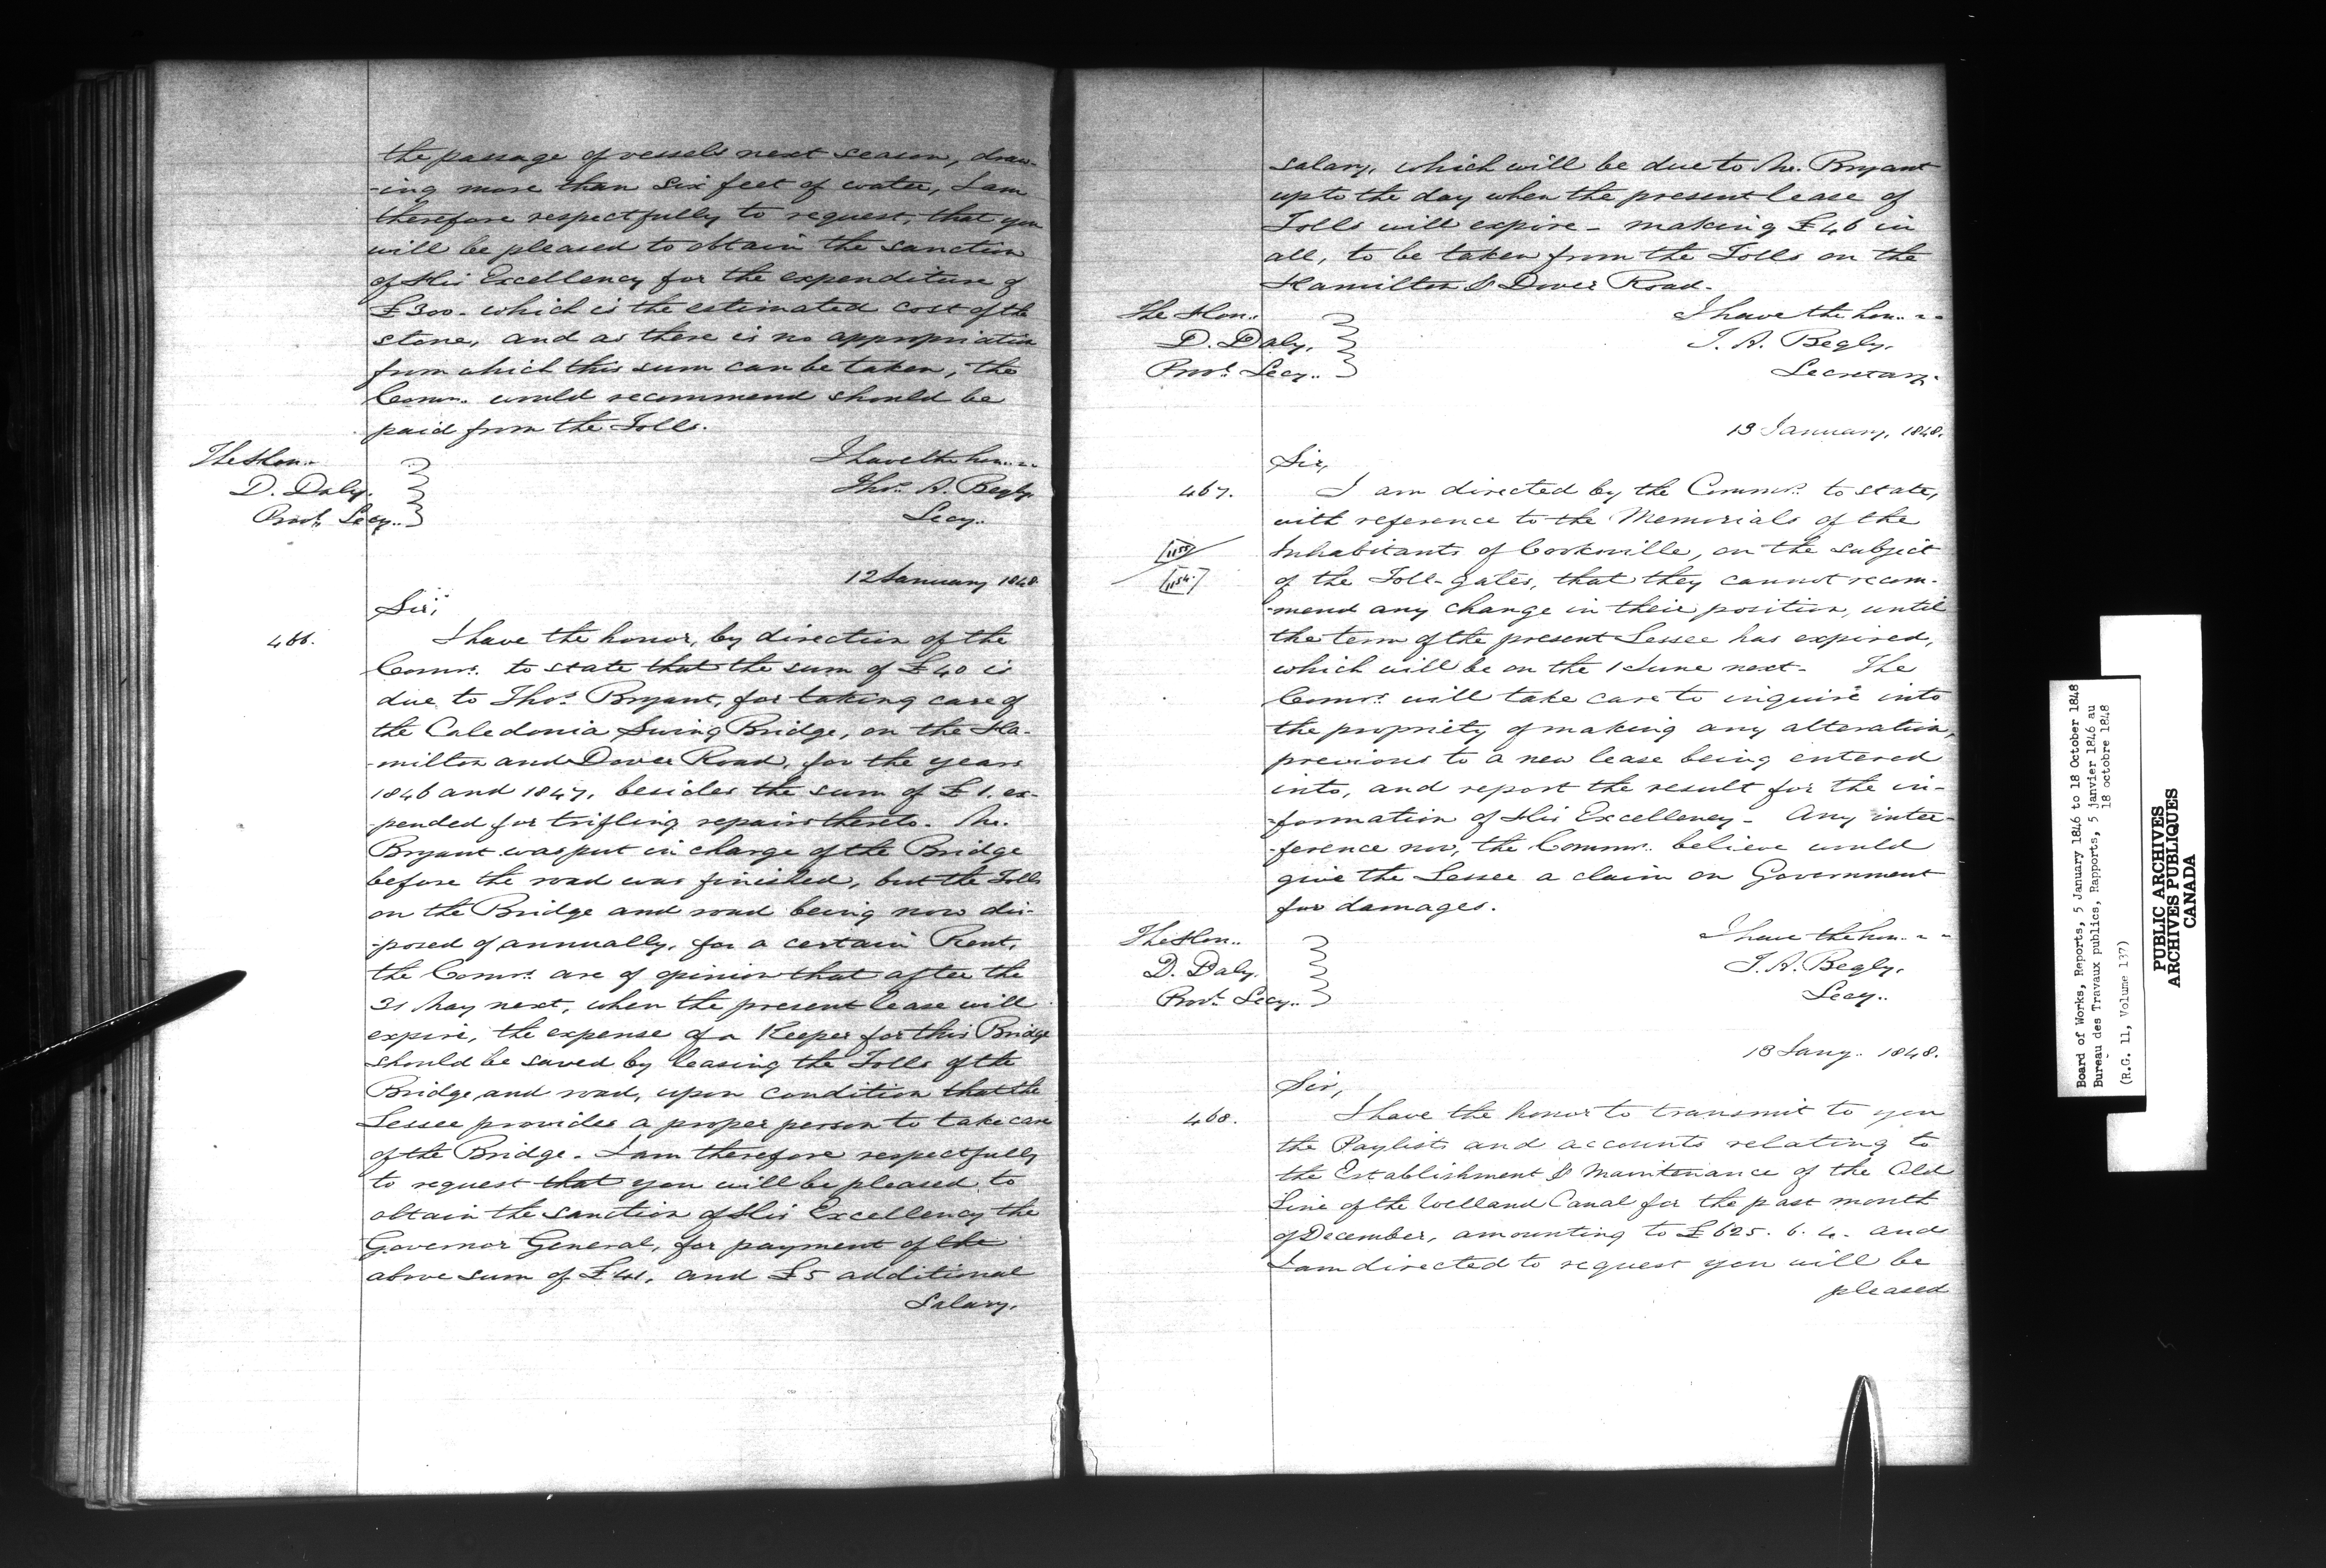 the passage of vessels next season, draw-
-ing more than six feet of water, I am
therefore respectfully to request, that you
will be pleased to obtain the sanction
of His Excellency for the expenditure of
£300. which is the estimated cost of the
stone, and as there is no appropriation
from which this sum can be taken, the
Comrs. would recommend should be
paid from the Tolls.
The Hon..
I have the hon..
D. Daly.
Thos. A. Begly.
Provl. Secy..
Secy..
12 January 1848
Sir,
466.
I have the honor, by direction of the
Comrs. to state that the sum of £40 is
due to Thos. Bryant, for taking care of
the Caledonia Swing Bridge, on the Ha-
-milton and Dover Road, for the years
1846 and 1847, besides the sum of £1. ex-
-pended for trifling repairs thereto. Mr.
Bryant was put in charge of the Bridge
before the road was finished, but the Tolls
on the Bridge and road being now dis-
-posed of annually, for a certain Rent,
the Comrs. are of opinion that after the
31 May next, when the present lease will
expire, the expense of a Keeper for this Bridge
should be saved by leasing the Tolls of the
Bridge and road, upon condition that the
Lessee provides a proper person to take care
of the Bridge. I am therefore respectfully
to request that you will be pleased to
obtain the sanction of His Excellency the
Governor General, for payment of the
above sum of £41. and £5 additional
Salary.
salary, which will be due to Mr. Bryant
up to the day when the present lease of
Tolls will expire - making £46 in
all, to be taken from the Tolls on the
Hamilton & Dover Road.
The Hon..
I have the hon..
D. Daly.
T. A. Begly.
Provl. Secy..
Secretary.
13 January, 1848.
Sir,
467.
I am directed by the Commrs. to state,
with reference to the Memorials of the
Inhabitants of Cooksville, on the subject
of the Toll-gates, that they cannot recom-
-mend any change in their position, until
the term of the present Lessee has expired,
which will be on the 1 June next. The
Comrs. will take care to inquire into
the propriety of making any alteration,
previous to a new lease being entered
into, and report the result for the in-
-formation of His Excellency - Any inter-
-ference now, the Commrs. believe would
give the Lessee a claim on Government
for damages.
The Hon..
I have the hon..
D. Daly.
T. A. Begly.
Provl. Secy..
Secy..
13 Jany. 1848.
Sir,
468.
I have the honor to transmit to you
the Paylists and accounts relating to
the Establishment & Maintenance of the Old
Line of the Welland Canal for the past month
of December, amounting to £625. 6. 4. and
I am directed to request you will be
pleased
Board of Works, Reports, 5 January 1846 to 18 October 1848
Bureau des Travaux publics, Rapports, 5 janvier 1846 au
18 octobre 1848
(R.G. 11, Volume 137)
PUBLIC ARCHIVES
ARCHIVES PUBLIQUES
CANADA